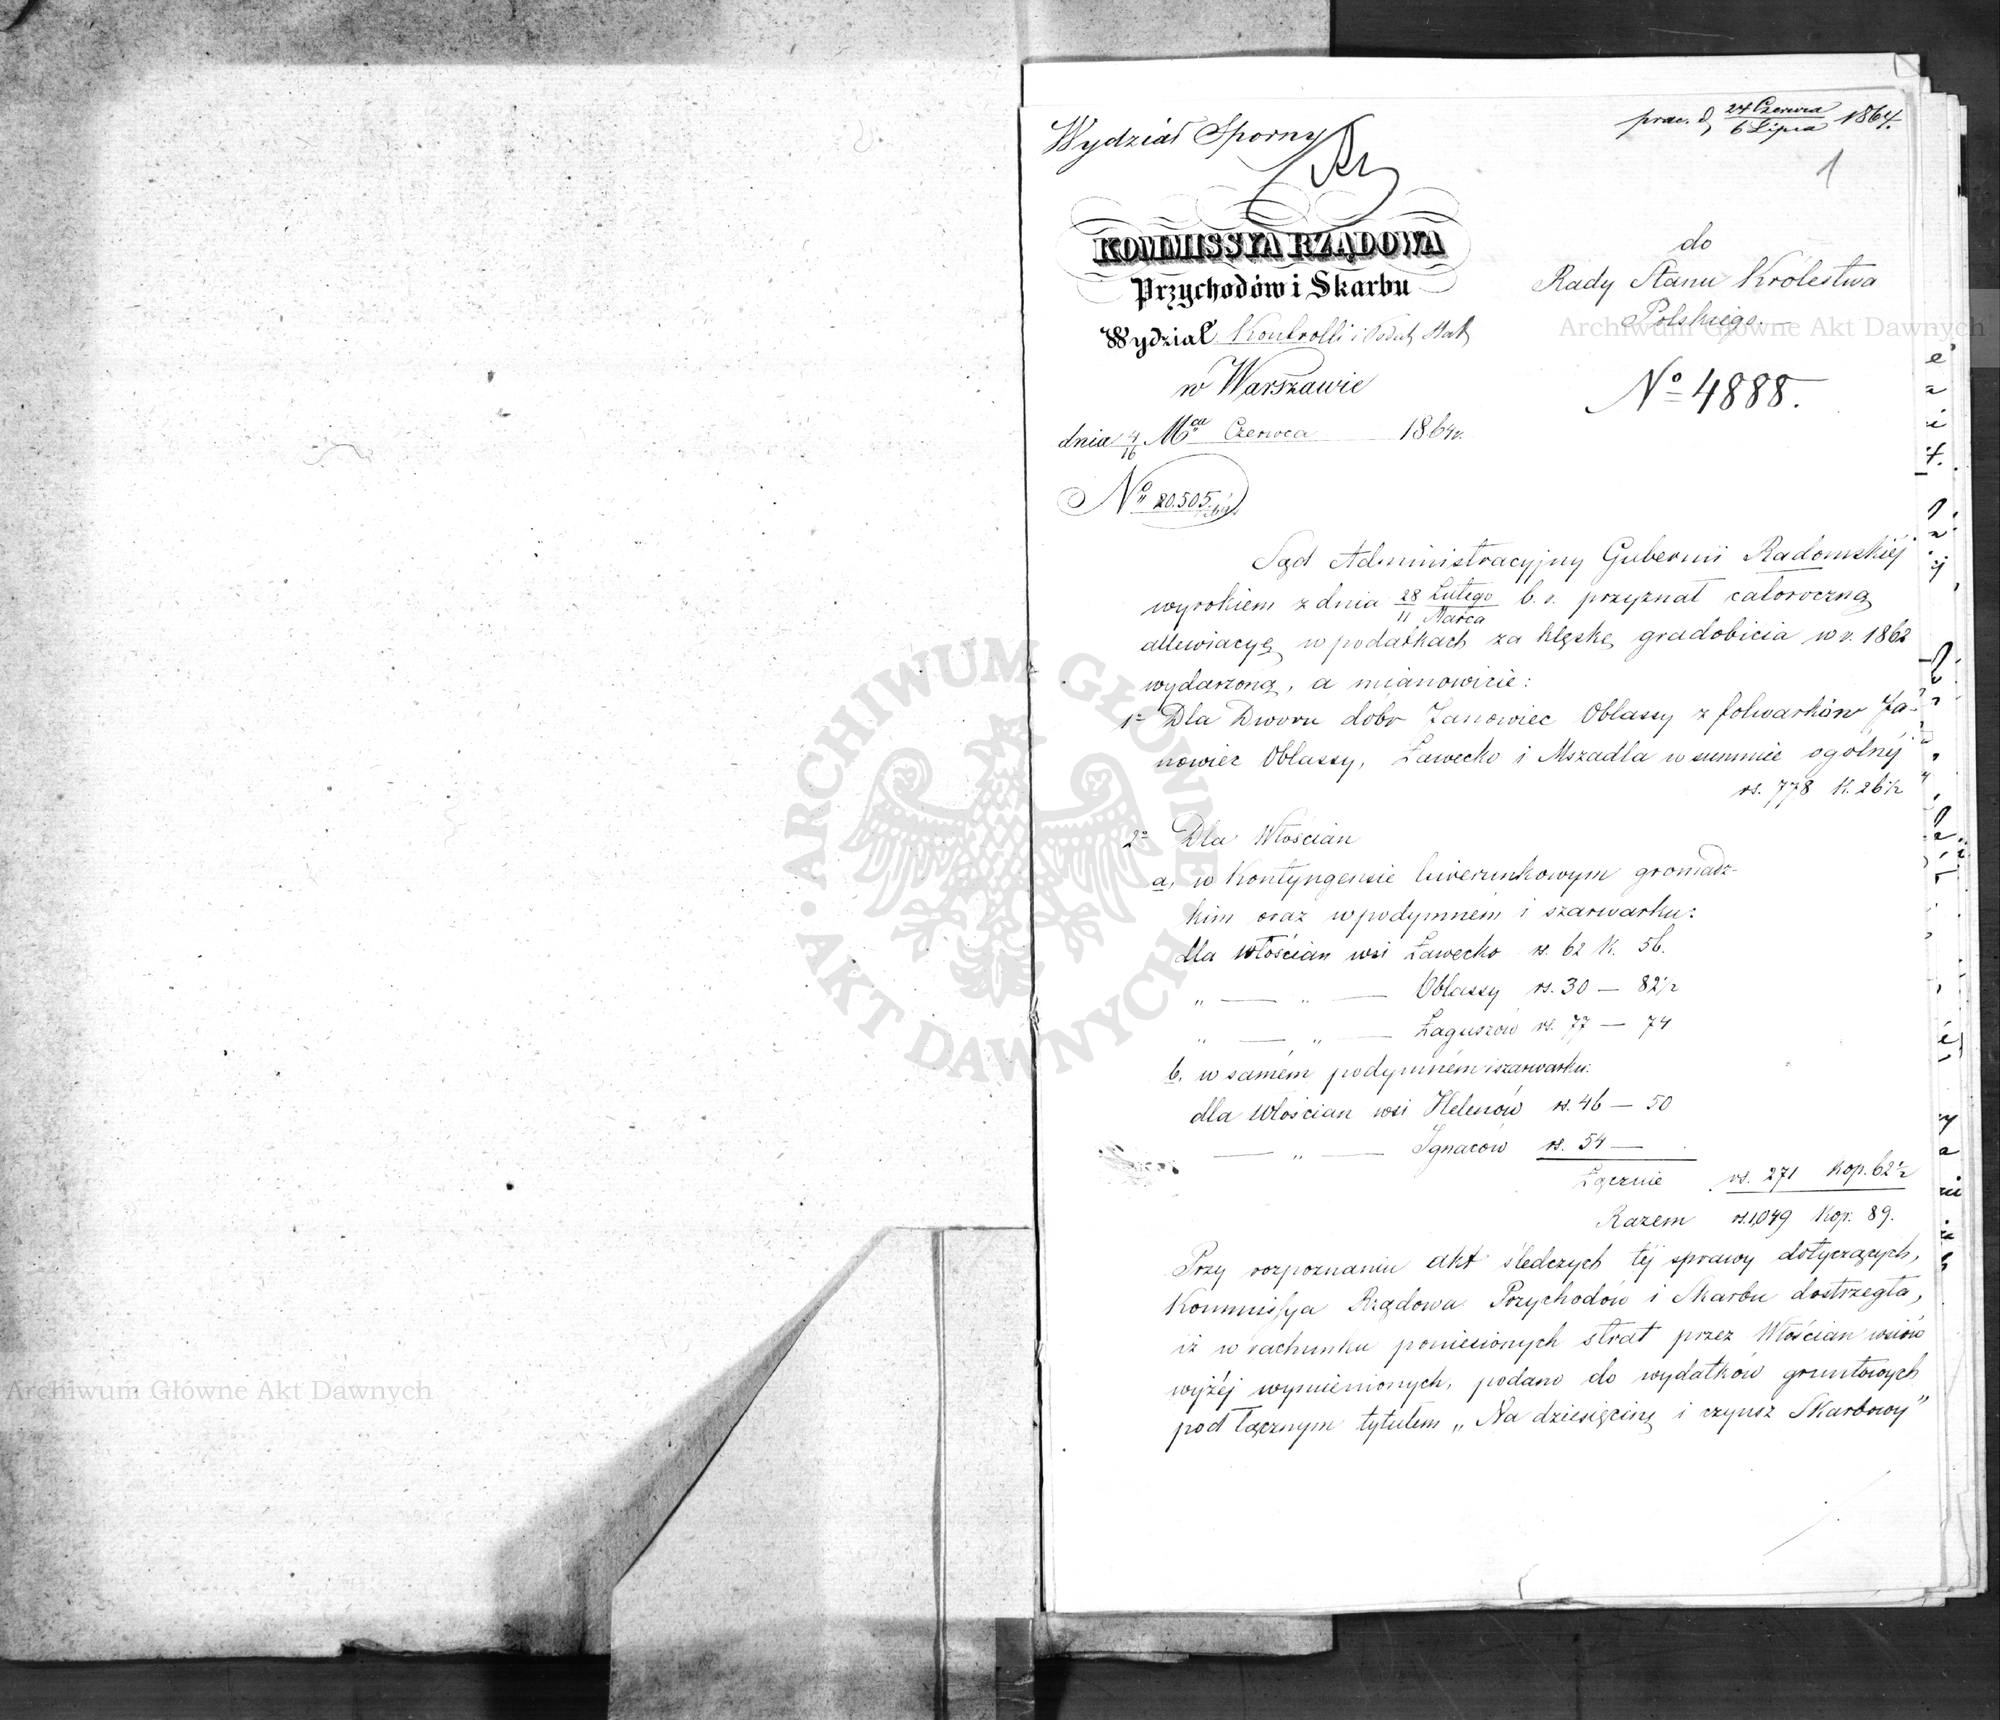 Wydział Sporny
prae. d, 24 Czerwca / 6 Lipca 1864.
1
KOMMISSYA RZĄDOWA
Przychodów i Skarbu
Wydział Kontrolli i
w Warszawie
dnia 4/16 Mca Czerwca 1864 r.
No 20.505
do
Rady Stanu Królestwa
Polskiego.
No 4888.
Sąd Administracyjny Gubernii Radomskiéj
wyrokiem z dnia 28 Lutego / 11 Marca b. r. przyznał całoroczną
allewiacyę w podatkach za klęskę gradobicia w r. 1862
wydarzoną, a mianowicie:
1o Dla Dworu dóbr Janowiec Oblassy z folwarków Ja-
nowiec Oblassy, Ławecko i Mszadla w summie ogólnéj
rs. 778 k. 26 1/2
2o Dla Włościan
a, w Kontyngensie liwerunkowym gromadz-
kim oraz w podymném i szarwarku:
dla włościan wsi Ławecko rs. 62 k. 56.
" — " — Oblassy rs. 30 — 82 1/2
" — " — Łaguszów rs. 77 — 74
b. w samém podymném i szarwarku:
dla Włościan wsi Helenów rs. 46 — 50
— " — Ignaców rs. 54 —
Łącznie rs. 271 kop. 62 1/2
Razem rs. 1,049 kop. 89.
Przy rozpoznaniu akt śledczych téj sprawy dotyczących,
Kommissya Rządowa Przychodów i Skarbu dostrzegła,
iż w rachunku poniesionych strat przez Włościan wsiów
wyżéj wymienionych, podano do wydatków gruntowych
pod łącznym tytułem „Na dziesięcinę i czynsz Skarbowy"
Archiwum Główne Akt Dawnych
Archiwum Główne Akt Dawnych
ARCHIWUM GŁÓWNE · AKT DAWNYCH ·